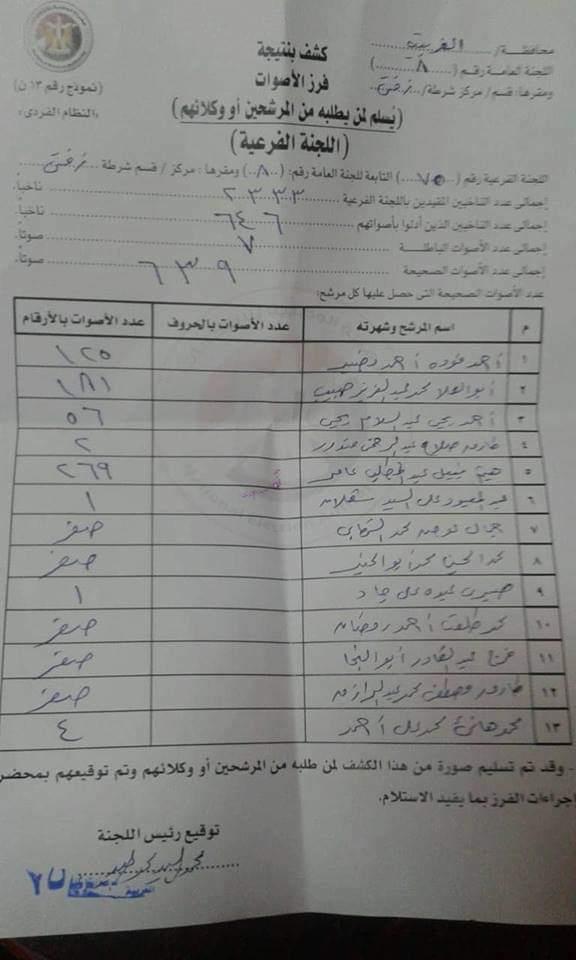 محافظة / الغربية
اللجنة العامة رقم ( ٨ )
ومقرها : قسم / مركز شرطة / زفتى
كشف بنتيجة
فرز الأصوات
(يُسلم لمن يطلبه من المرشحين أو وكلائهم)
(اللجنة الفرعية)
(نموذج رقم ١٣ ن)
«النظام الفردى»
اللجنة الفرعية رقم ( ٧٥ ) التابعة للجنة العامة رقم: ( ٨ ) ومقرها : مركز / قسم شرطة زفتى
إجمالى عدد الناخبين المقيدين باللجنة الفرعية ٢٣٣٣ ناخباً.
إجمالى عدد الناخبين الذين أدلوا بأصواتهم ٦٤٦ ناخباً.
إجمالى عدد الأصوات الباطلة ٧ صوتاً.
إجمالى عدد الأصوات الصحيحة ٦٣٩ صوتاً.
عدد الأصوات الصحيحة التى حصل عليها كل مرشح:
م اسم المرشح وشهرته عدد الأصوات بالحروف عدد الأصوات بالأرقام
١ أحمد فوده أحمد ١٢٥
٢ أبو العلا محمد عبدالعزيز حبيب ١٨١
٣ أحمد يحيى عبد السلام يحيى ٥٦
٤ طارق صلاح عبد الرحمن مندور ٢
٥ نبيل عبد العاطى عامر ٢٦٩
٦ عبد المعبود على السيد شعلان ١
٧ جمال محمد صفر
٨ محمد محمد أبو صفر
٩ صبرى عبده على جاد ١
١٠ محمد طلعت أحمد رمضان صفر
١١ فرج عبد القادر أبو النجا صفر
١٢ طارق مصطفى محمد عبد الرازق صفر
١٣ محمد هانى محمد على أحمد ٤
- وقد تم تسليم صورة من هذا الكشف لمن طلبه من المرشحين أو وكلائهم وتم توقيعهم بمحضر
إجراءات الفرز بما يفيد الاستلام.
توقيع رئيس اللجنة
٧٥